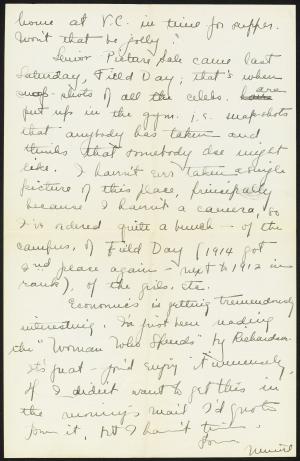 home at V.C. in time for supper.
Won't that be jolly!
Senior Picture Sale came last
Saturday, Field Day; that's when
snap-shots of all the celebs. are
put up in the gym. i.e. snapshots
that anybody has taken and
thinks that somebody else might
like. I haven't ever taken a single
picture of this place, principally
because I haven't a camera, so
I've ordered quite a bunch - of the
campus, of Field Day (1914 got
2nd place again - next to 1912 in
rank), of the girls, etc.
Economics is getting tremendously
interesting. I've just been reading
the "Woman Who Spends" by Richardson.
It's great - you'd enjoy it immensely.
If I didn't want to get this in
the morning's mail I'd quote
from it, but I haven't time.
Muriel